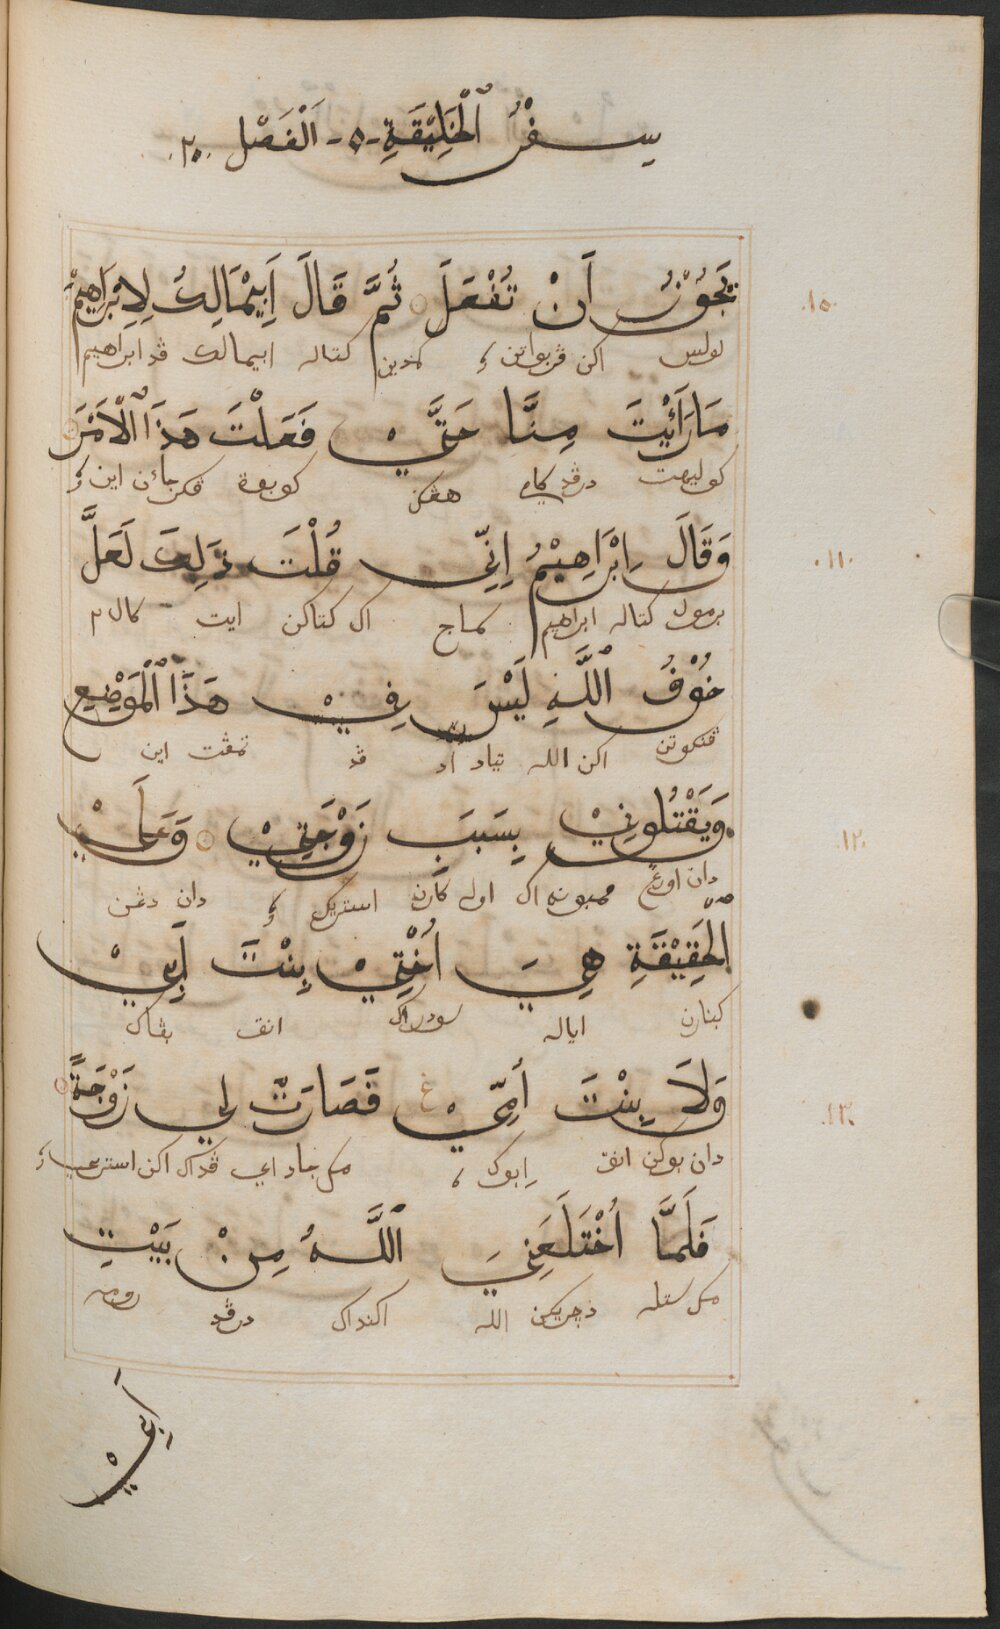 سِفْرُ ٱلْخَلِيْقَةِ - ٥ - اَلْفَصْل ٢٠
يَجُوْزُ أَنْ تُفْعَلَ ثُمَّ قَالَ أَبِيْمَالِكُ لِإِبْرَاهِيْمَ
١٠
بولس اكن ڤربواتن كمدين كتاله ابيمالك ڤد ابراهيم
مَا رَأَيْتَ مِنَّا حَتَّيْ فَعَلْتَ هَذَا ٱلْأَمْرَ
كوليهت درڤد كامي هڠكن كوبوة ڤكرجاءن اين
وَقَالَ إِبْرَاهِيْمُ إِنِّي قُلْتَ ذَلِكَ لَعَلَّ
١١
كتاله ابراهيم اك كتاكن ايت كال٢
خَوْفُ ٱللَّهِ لَيْسَ فِيْ هَذَا ٱلْمَوْضِعِ
اكن الله تياد اد ڤد تمڤت اين
وَيَقْتُلُونِيْ بِسَبَبِ زَوْجَتِيْ وَعَلَيْ
١٢
دان اورڠ ممبونه اك اوله كارن استريك دان دڠن
الْحَقِيْقَةِ هِيَ أُخْتِيْ بِنْتَ أَبِيْ
كبنارن اياله سودراك انق بڤاك
وَلَا بِنْتَ أُمِّيْ فَصَارَتْ لِي زَوْجَةً
١٣
دان بوكن انق ايبوك مك جاد اي ڤداك اكن استري
فَلَمَّا أُخْتَلَعَنِيَ ٱللَّهُ مِنْ بَيْتِ
مك ستله الله اكنداك درڤد رومه
أَبِيْ